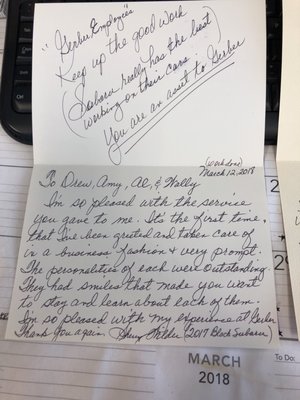 "Gerber Employees"
Keep up the good work
(Subaru really has the best)
working on their cars
You are an asset to Gerber
(work done)
March 12, 2018
To Drew, Amy, Al, & Wally
I'm so pleased with the service
you gave to me. It's the first time,
that I've been greeted and taken care of
in a business fashion & very prompt.
The personalities of each were outstanding.
They had smiles that made you want
to stay and learn about each of them.
I'm so pleased with my experience at Gerber.
Thank you again. (2017 Black Subaru)
MARCH
2018
To Do: